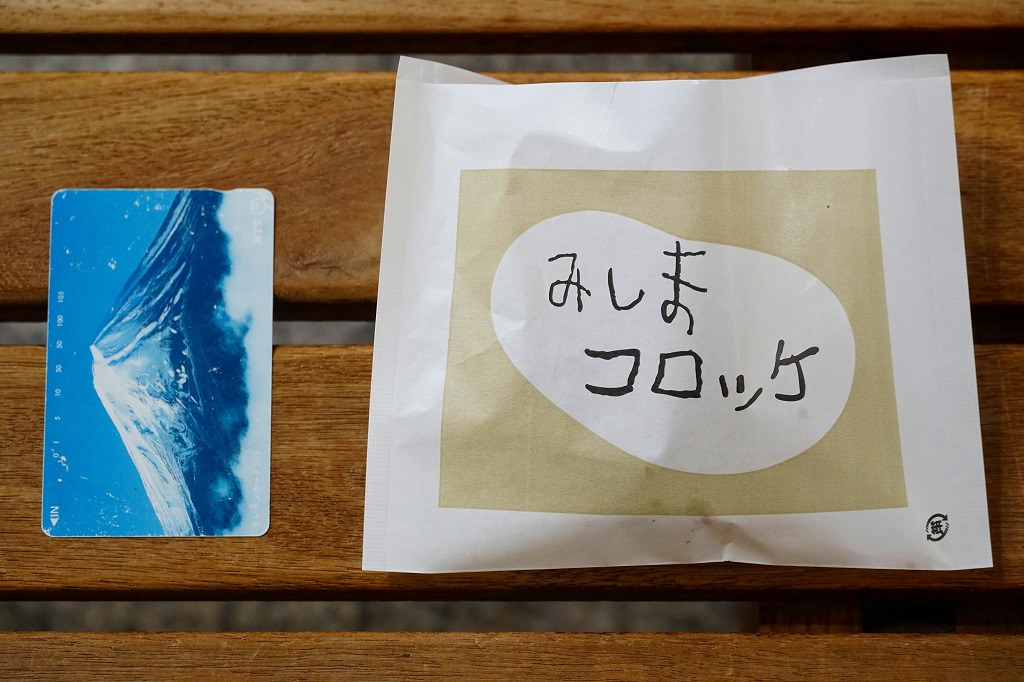 みしま
コロッケ
紙
NTT
テレホンカード105
105
100
50
30
10
5
1
0
◀IN